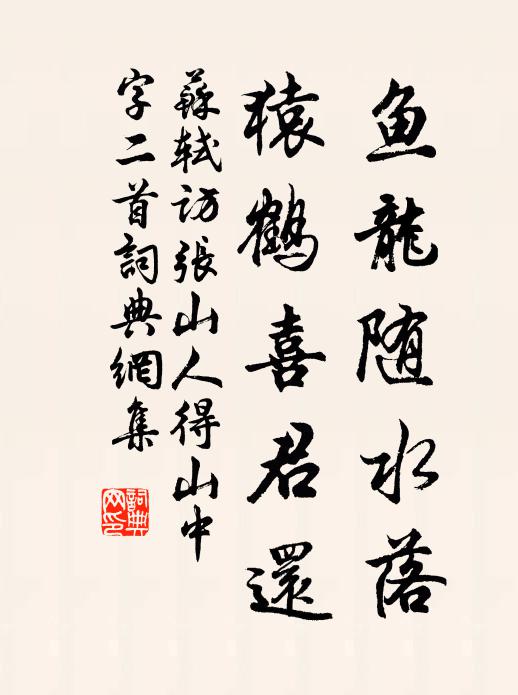 鱼龍随水落
猿鶴喜君還
蘇軾訪張山人得山中
字二首詞典網集
詞典网印